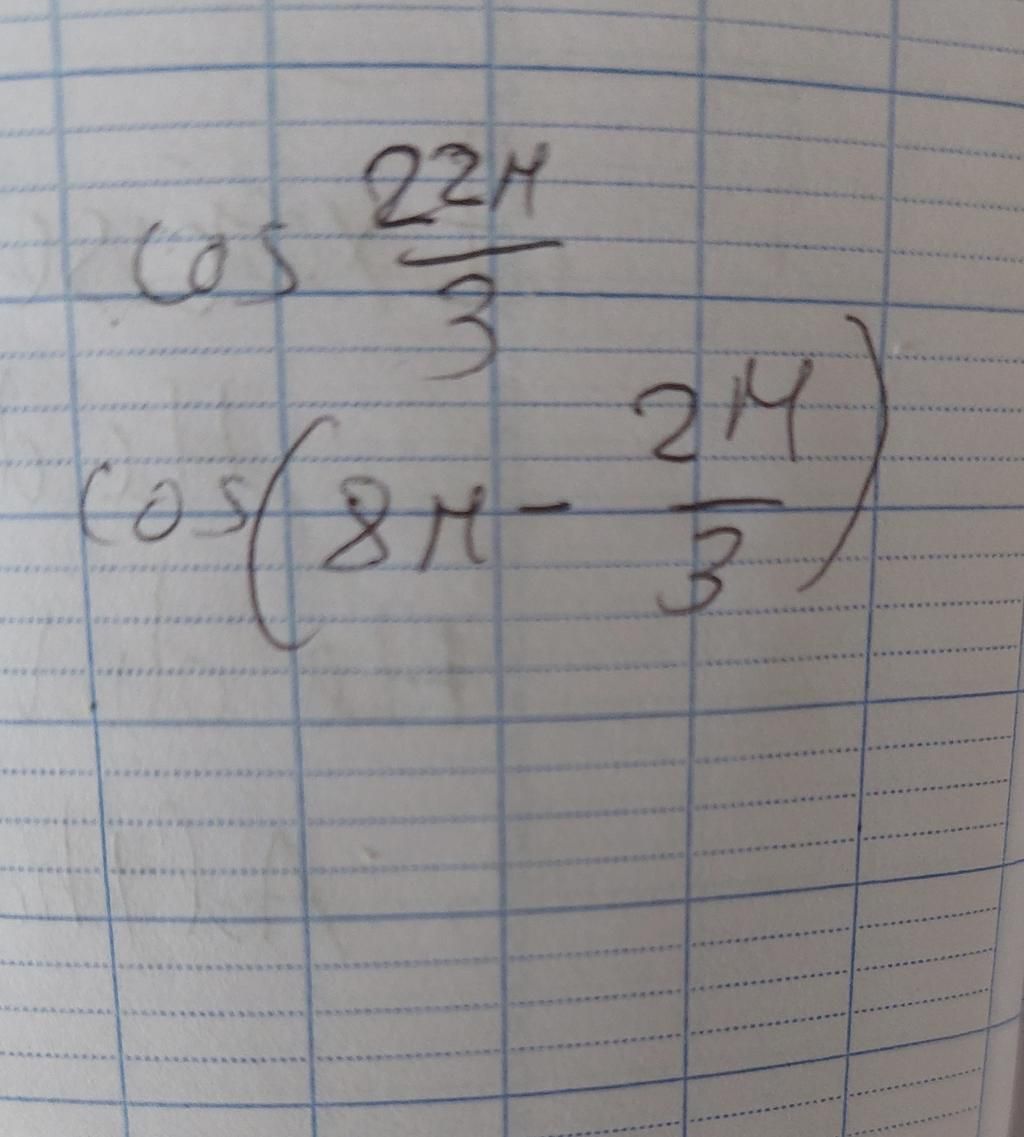 cos 22π/3
cos(8π - 2π/3)